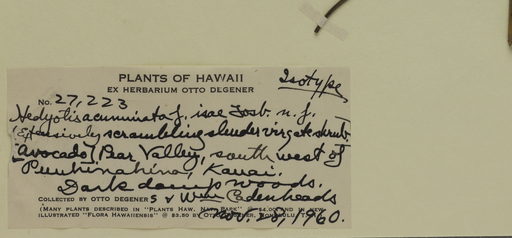 PLANTS OF HAWAII
Isotype
EX HERBARIUM OTTO DEGENER
No. 27,223
Hedyotis acuminata f. isae Fosb. n. f.
(Extensively scrambling slender virgate shrub
Avocado (Pear Valley, southwest of
Puuhinahina, Kauai.
Dark damp woods.
COLLECTED BY OTTO DEGENER S & Wm
(MANY PLANTS DESCRIBED IN "PLANTS HAW. NATL PARK" @ $4.00 AND IN NEW
ILLUSTRATED "FLORA HAWAIIENSIS" @ $3.50 BY OTTO DEGENER, HONOLULU
Nov. 20, 1960.